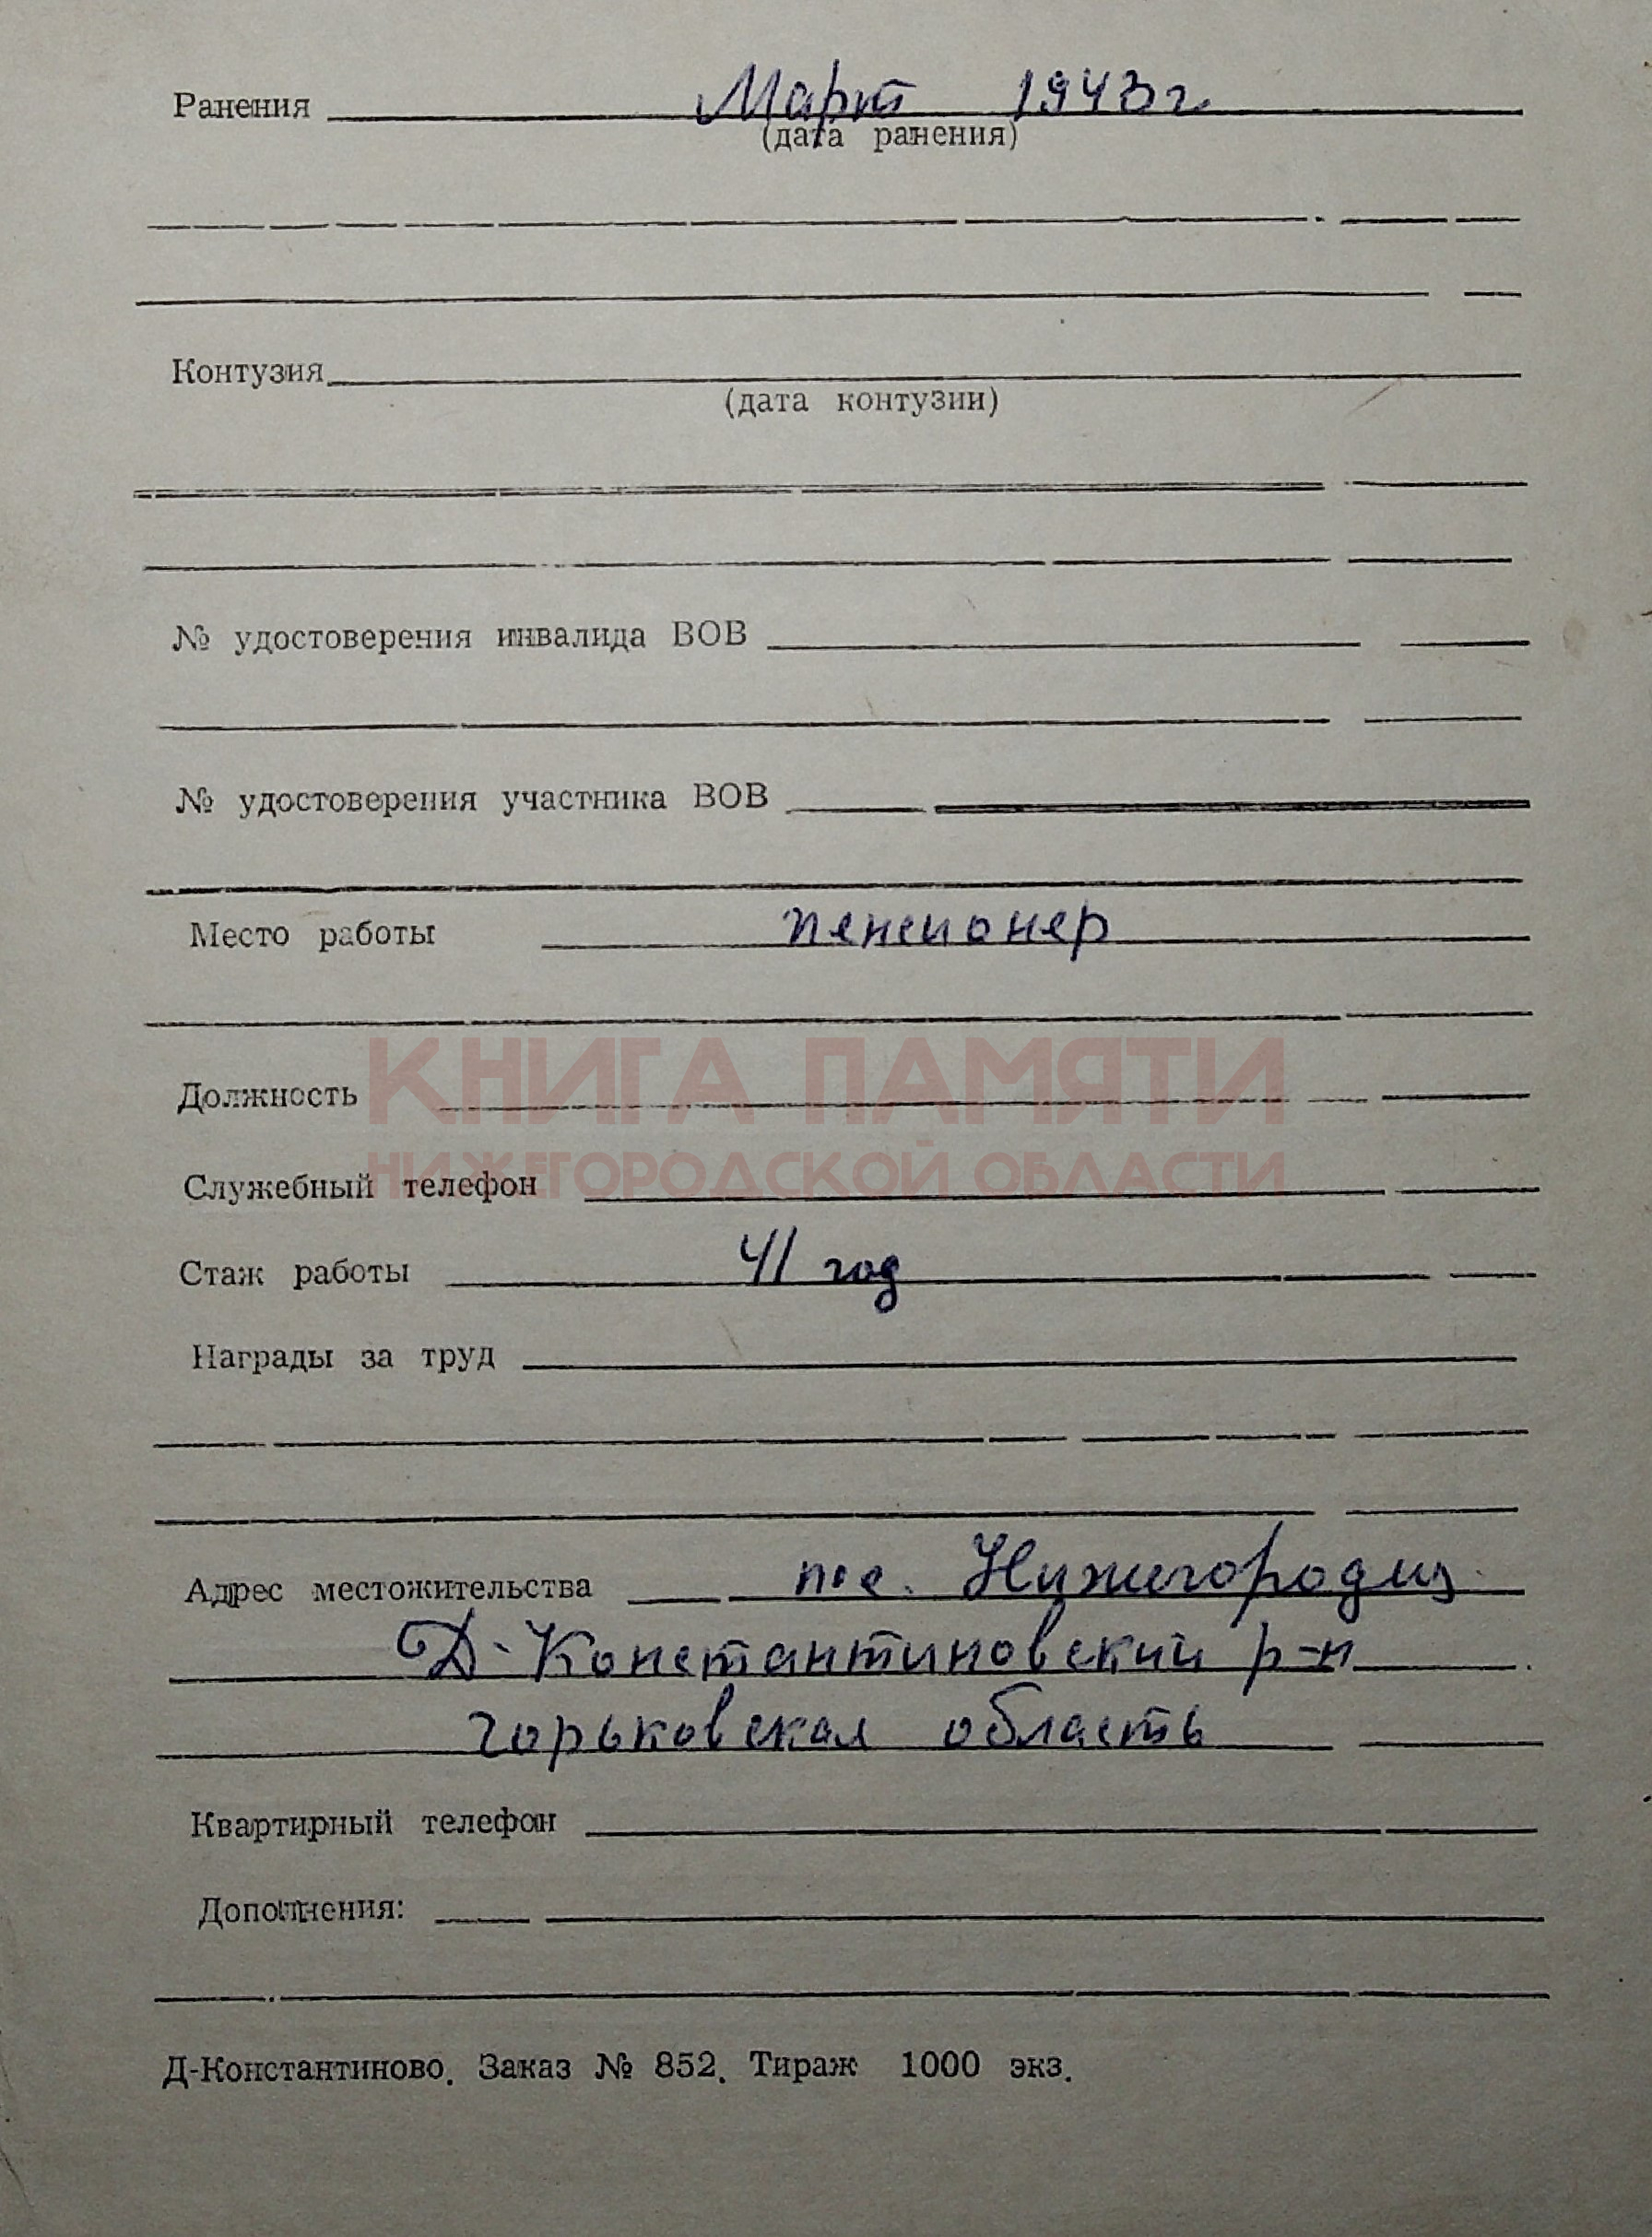 Ранения Март 1943 г
(дата ранения)
Контузия
(дата контузии)
№ удостоверения инвалида ВОВ
№ удостоверения участника ВОВ
Место работы пенсионер
КНИГА ПАМЯТИ
Должность
НИЖЕГОРОДСКОЙ ОБЛАСТИ
Служебный телефон
Стаж работы 41 год
Награды за труд
Адрес местожительства пос. Нижегородец
Д-Константиновский р-н
горьковская область
Квартирный телефон
Дополнения:
Д-Константиново. Заказ № 852. Тираж 1000 экз.